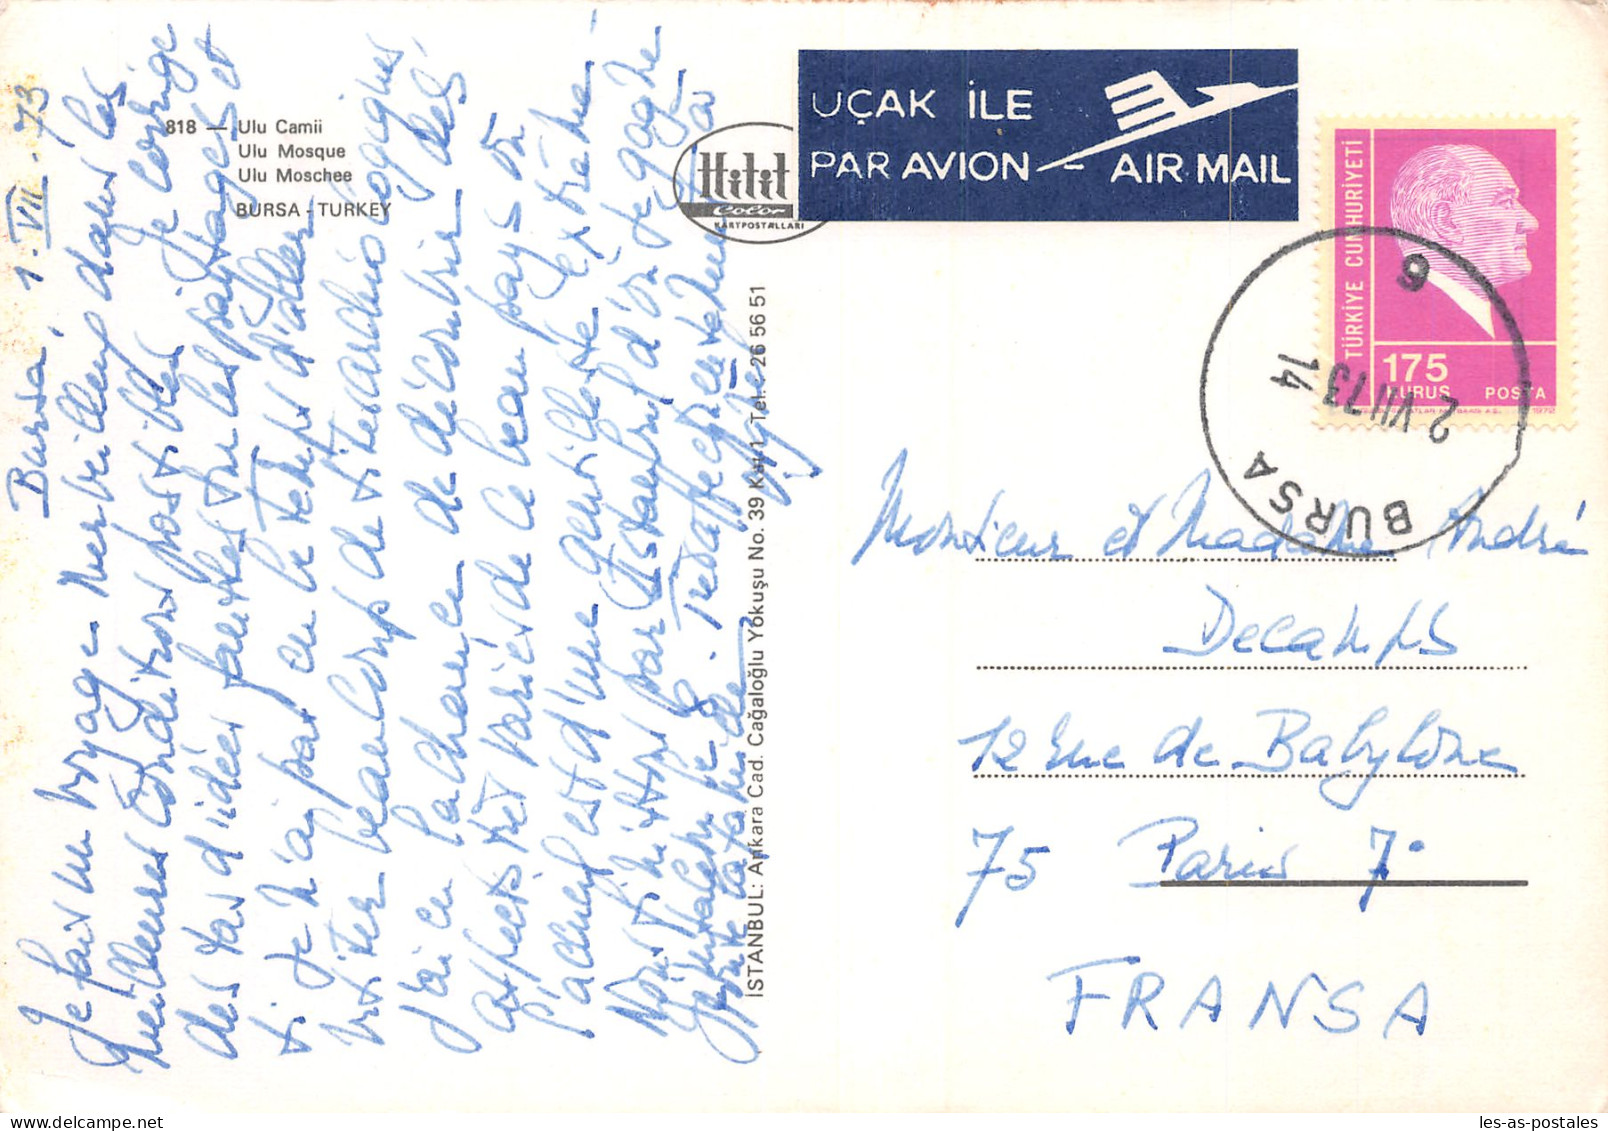 818 — Ulu Camii
Ulu Mosque
Ulu Moschee
BURSA - TURKEY
Hitit
Color
KARTPOSTALLARI
UÇAK İLE
PAR AVION - AIR MAIL
TÜRKİYE CUMHURİYETİ
175
KURUS POSTA
1972
BURSA
2 VII 73 14
6
İSTANBUL: Ankara Cad. Cağaloğlu Yokuşu No. 39 Kat 1 Tel: 26 56 51
Bursa, 1. VII. 73
Je fais un voyage merveilleux dans les
meilleures conditions possibles. Je corrige
des tas d'idées fausses sur les paysages et
si je n'ai pas eu le temps d'aller
visiter beaucoup de sites archéologiques
j'ai eu la chance de découvrir des
aspects très variés de ce beau pays où
l'accueil est d'une gentillesse extrême.
Nous finissons par Istanbul d'où je gagne
Jérusalem le 8. Très affectueusement à vous
Monsieur et Madame André
Decamps
12 rue de Babylone
75 Paris 7°
FRANSA
les-as-postales